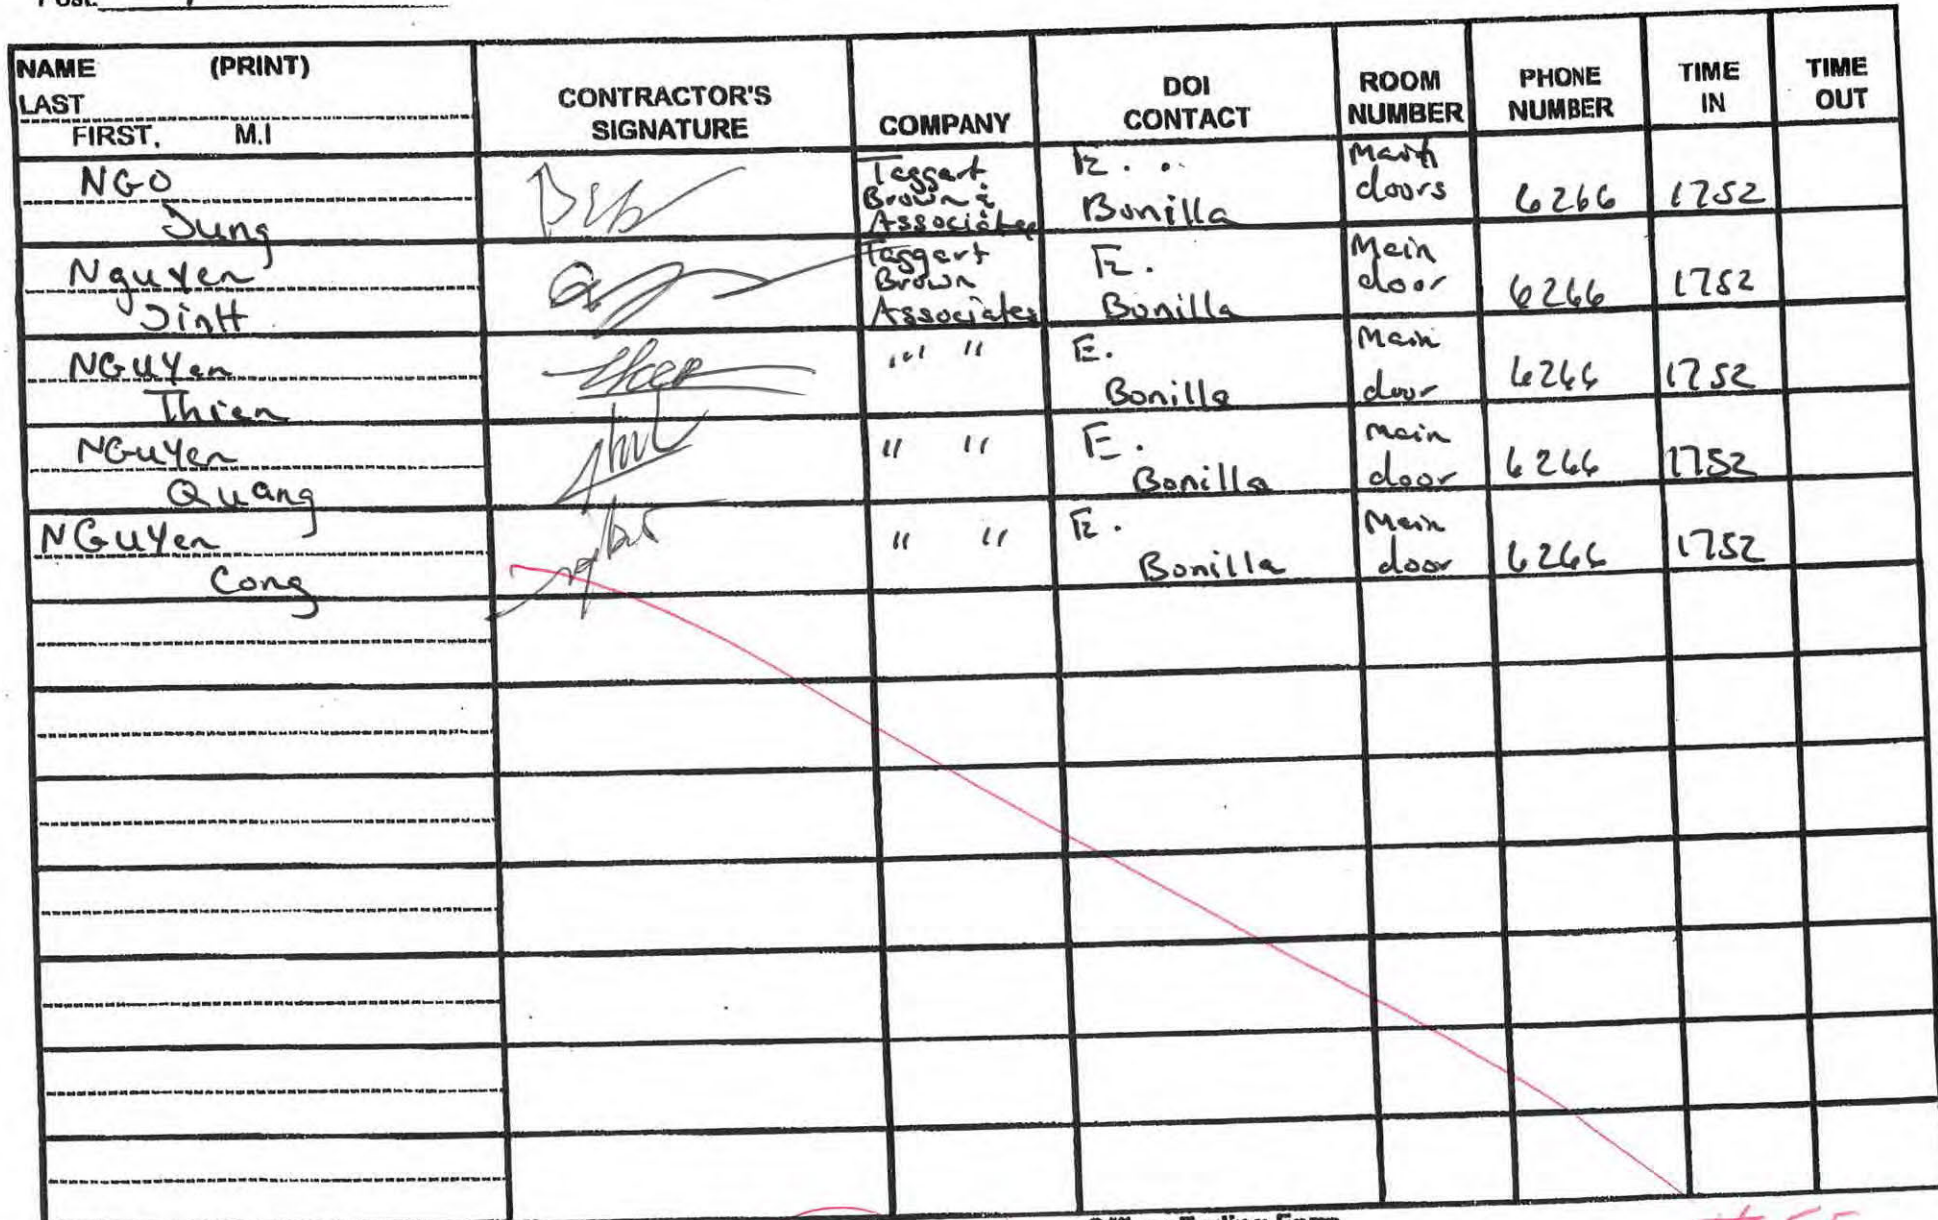 Post:
NAME (PRINT)
LAST
FIRST, M.I
CONTRACTOR'S
SIGNATURE
COMPANY
DOI
CONTACT
ROOM
NUMBER
PHONE
NUMBER
TIME
IN
TIME
OUT
NGO
Dung
Taggart
Brown &
Associates
E.
Bonilla
Main
doors
6266
1752
Nguyen
DinH
Taggart
Brown
Associates
E.
Bonilla
Main
door
6266
1752
NGuYen
Thien
" "
E.
Bonilla
Main
door
6266
1752
NGuYen
Quang
" "
E.
Bonilla
main
door
6266
1752
NGuYen
Cong
" "
E.
Bonilla
Main
door
6266
1752